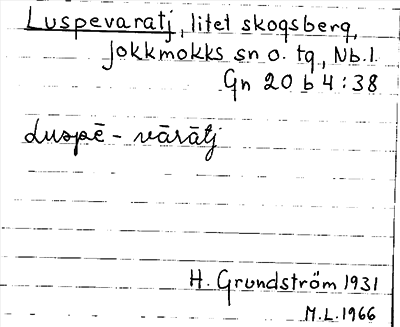 Luspevaratj, litet skogsberg,
Jokkmokks sn o. tg., Nb. l.
Gn 20 b 4:38
luspē - vārātj
H. Grundström 1931
M.L. 1966